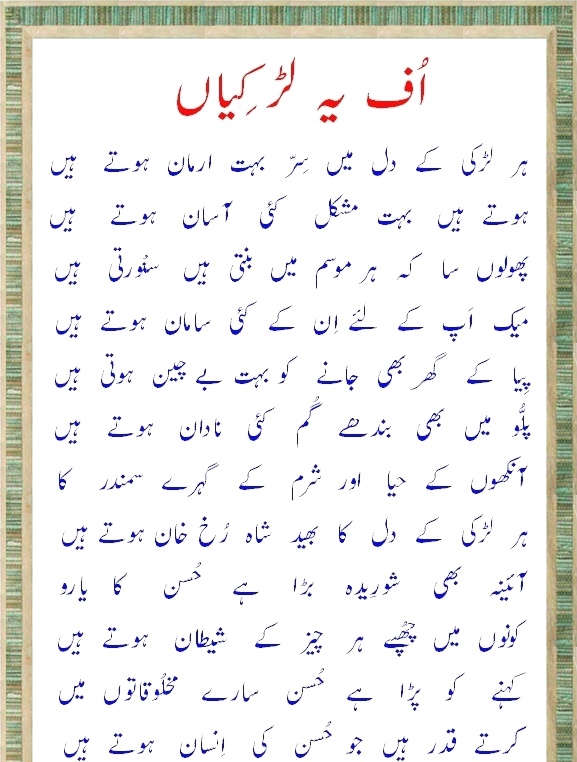 اُف یہ لڑکِیاں
ہر لڑکی کے دل میں سِرّ بہت ارمان ہوتے ہیں
ہوتے ہیں بہت مشکل کئی آسان ہوتے ہیں
پھولوں سا کہ ہر موسم میں بنتی ہیں سنْورتی ہیں
میک اَپ کے لئے اِن کے کئی سامان ہوتے ہیں
پِیا کے گھر بھی جانے کو بہت بے چین ہوتی ہیں
پلُّو میں بھی بندھے گُم کئی نادان ہوتے ہیں
آنکھوں کے حیا اور شرم کے گہرے سمندر کا
ہر لڑکی کے دل کا بھید شاہ رُخ خان ہوتے ہیں
آئینہ بھی شورِیدہ بڑا ہے حُسن کا یارو
کونوں میں چُھپے ہر چیز کے شیطان ہوتے ہیں
کہنے کو پڑا ہے حُسن سارے مخلُوقاتوں میں
کرتے قدر ہیں جو حُسن کی اِنسان ہوتے ہیں